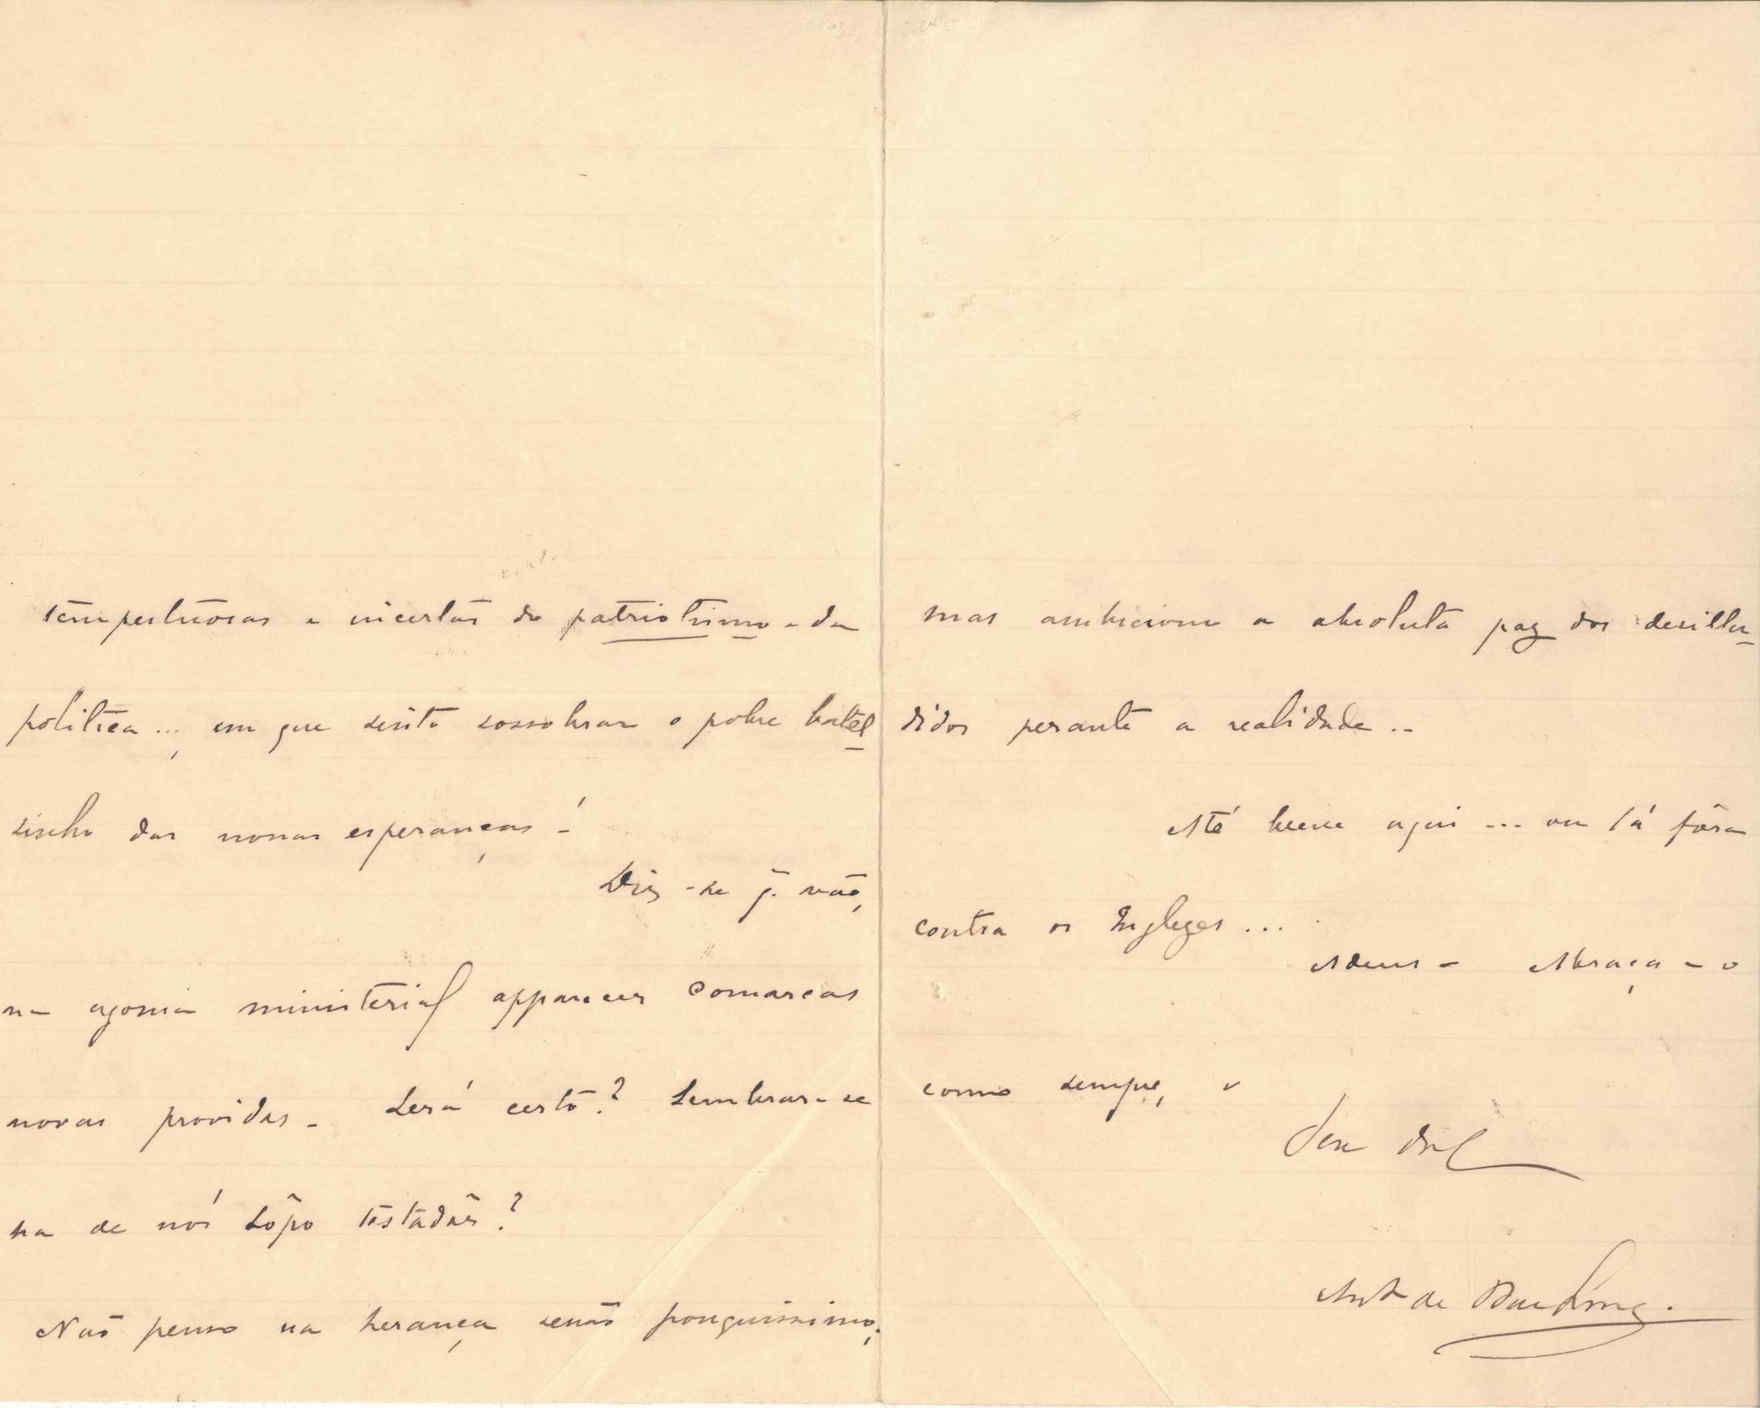 tempestuosas e incertas do patriotismo e da
politica..., em que sinto sossobrar o pobre batel-
sinho das nossas esperanças!
Diz-se q. vão,
na agonia ministerial apparecer comarcas
novas providas. Será certo? Lembrar-se
ha de nós Lôpo testadôr?
Não penso na herança senão pouquissimo;
mas ambiciono a absoluta paz dos desillu-
didos perante a realidade..
Até breve aqui ... ou lá fóra
contra os Inglezes ...
Adeus - Abraça-o
como sempre, o
Seu
Ant de